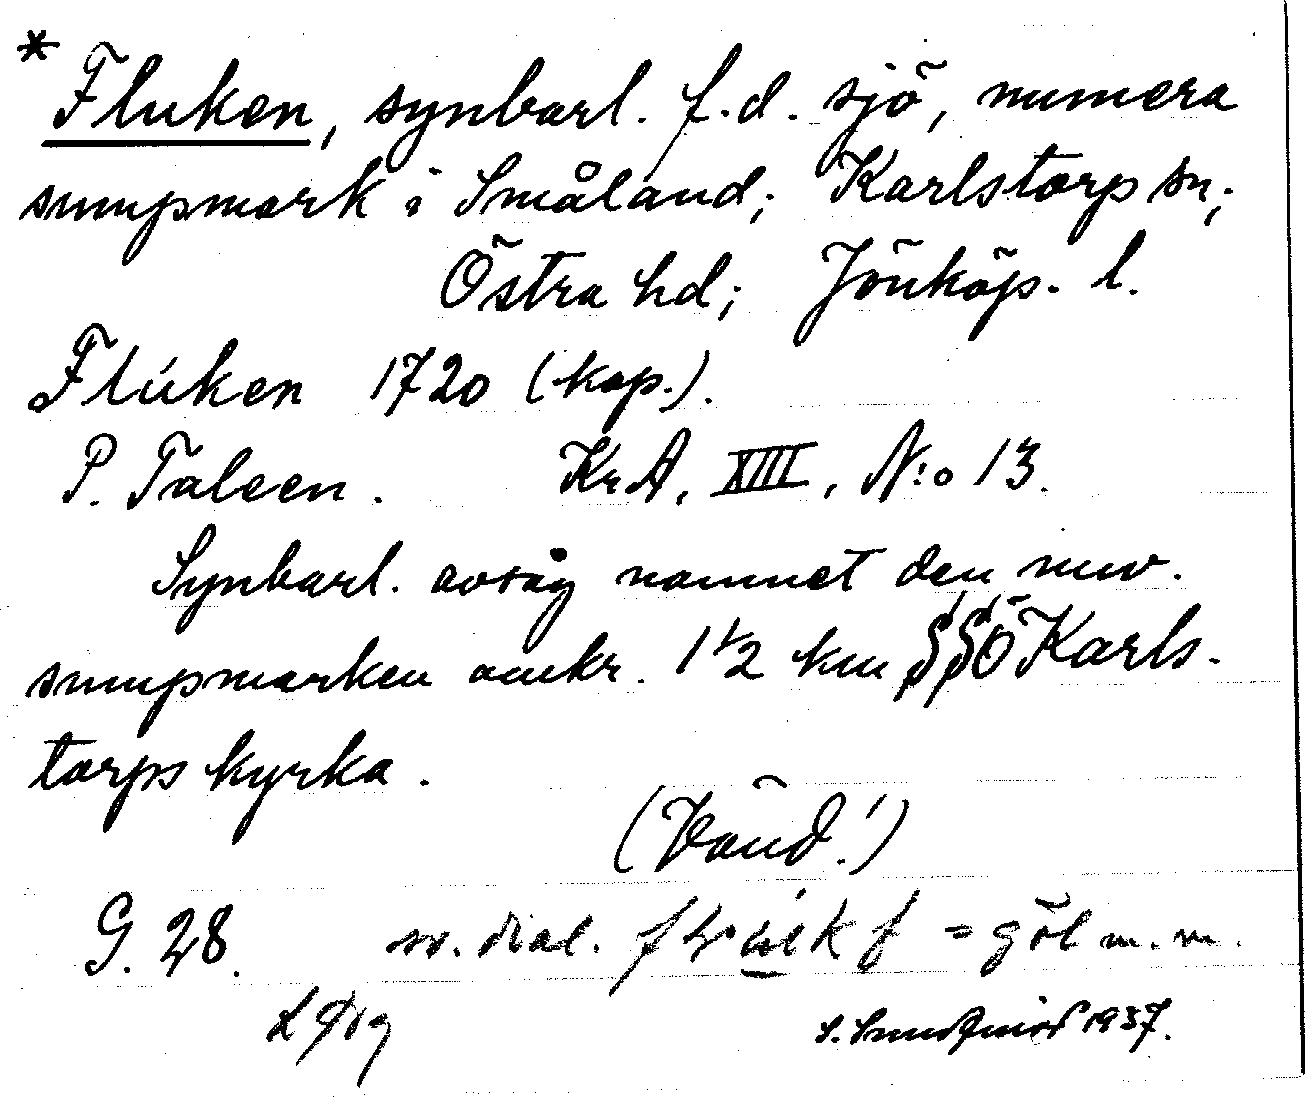 * Fluken, synbarl. f.d. sjö, numera
sumpmark i Småland; Karlstorp sn;
Östra hd; Jönköp. l.
Flúken 1720 (kop.).
P. Taleen. KrA, XIII, N:o 13.
Synbarl. avsåg namnet den nuv.
sumpmarken omkr. 1 1/2 km SSÖ Karls-
torps kyrka.
(Vänd!)
G. 28. sv. dial. f = göl m.m.
1937.